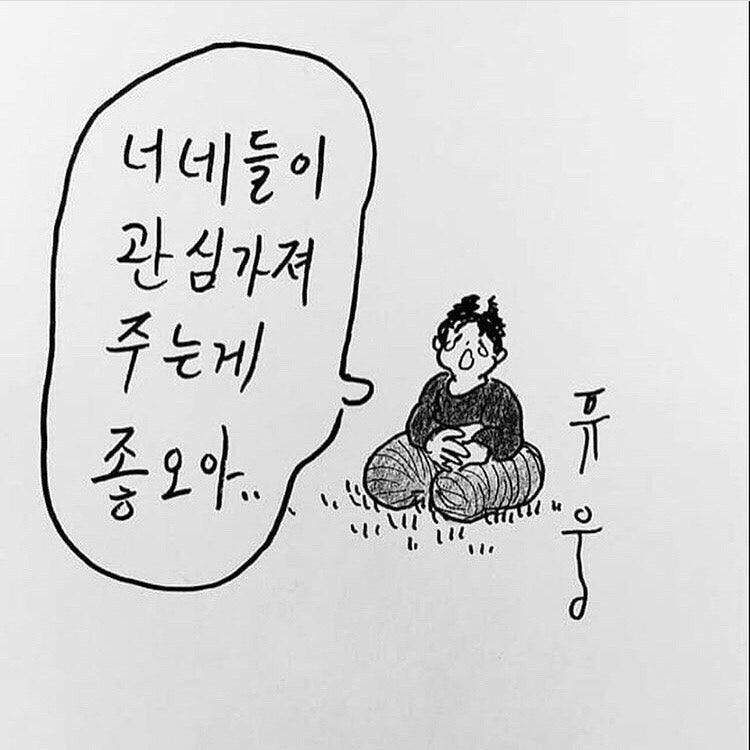 너네들이
관심가져
주는게
좋오아..
퓨
웅